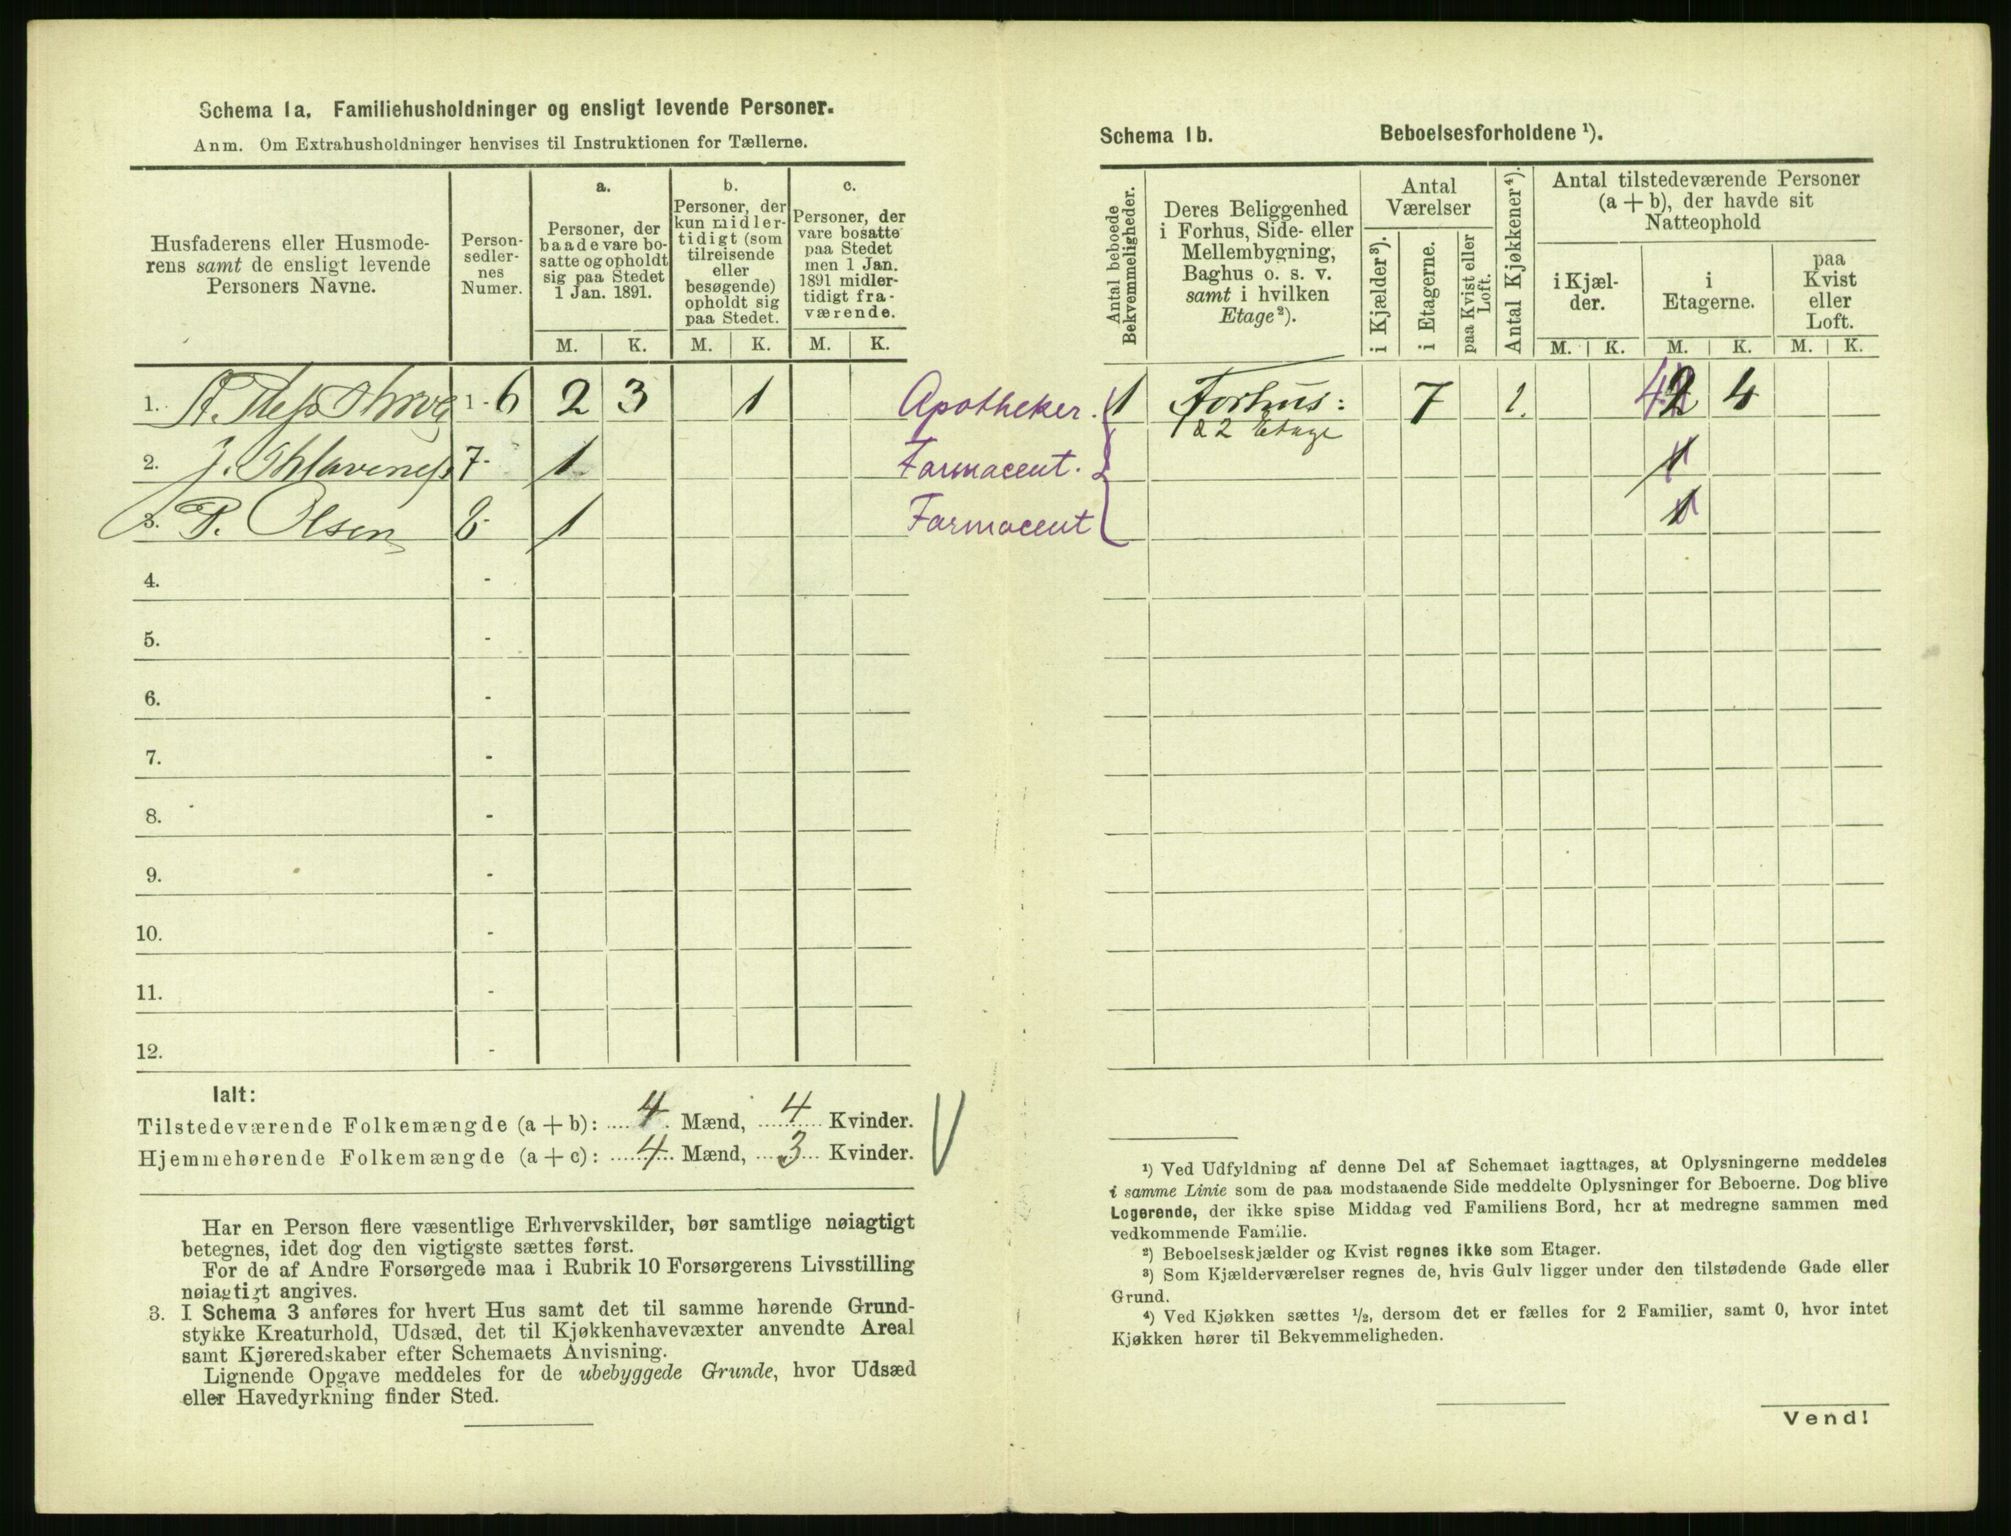 Schema 1a. Familiehusholdninger og ensligt levende Personer.
Anm. Om Extrahusholdninger henvises til Instruktionen for Tællerne.
Husfaderens eller Husmode-
rens samt de ensligt levende
Personers Navne.
Person-
sedler-
nes
Numer.
a.
Personer, der
baade vare bo-
satte og opholdt
sig paa Stedet
1 Jan. 1891.
b.
Personer, der
kun midler-
tidigt (som
tilreisende
eller
besøgende)
opholdt sig
paa Stedet.
c.
Personer, der
vare bosatte
paa Stedet
men 1 Jan.
1891 midler-
tidigt fra-
værende.
M. K. M. K. M. K.
1. 1 - 6 2 3 1 Apotheker.
2. J. 7 - 1 Farmaceut.
3. P. Olsen 8 - 1 Farmaceut
4. -
5. -
6. -
7. -
8. -
9. -
10. -
11. -
12. -
Ialt:
Tilstedeværende Folkemængde (a + b): 4 Mænd, 4 Kvinder.
Hjemmehørende Folkemængde (a + c): 4 Mænd, 3 Kvinder.
Har en Person flere væsentlige Erhvervskilder, bør samtlige nøiagtigt
betegnes, idet dog den vigtigste sættes først.
For de af Andre Forsørgede maa i Rubrik 10 Forsørgerens Livsstilling
nøiagtigt angives.
3. I Schema 3 anføres for hvert Hus samt det til samme hørende Grund-
stykke Kreaturhold, Udsæd, det til Kjøkkenhavevæxter anvendte Areal
samt Kjøreredskaber efter Schemaets Anvisning.
Lignende Opgave meddeles for de ubebyggede Grunde, hvor Udsæd
eller Havedyrkning finder Sted.
Schema 1b. Beboelsesforholdene ¹).
Antal beboede
Bekvemmeligheder.
Deres Beliggenhed
i Forhus, Side- eller
Mellembygning,
Baghus o. s. v.
samt i hvilken
Etage²).
Antal
Værelser
i Kjælder³).
i Etagerne.
paa Kvist eller
Loft.
Antal Kjøkkener⁴).
Antal tilstedeværende Personer
(a + b), der havde sit
Natteophold
i Kjæl-
der.
i
Etagerne.
paa
Kvist
eller
Loft.
M. K. M. K. M. K.
1 Forhus: 7 1. 2 4
1 & 2 Etage
1
1
¹) Ved Udfyldning af denne Del af Schemaet iagttages, at Oplysningerne meddeles
i samme Linie som de paa modstaaende Side meddelte Oplysninger for Beboerne. Dog blive
Logerende, der ikke spise Middag ved Familiens Bord, her at medregne sammen med
vedkommende Familie.
²) Beboelseskjælder og Kvist regnes ikke som Etager.
³) Som Kjælderværelser regnes de, hvis Gulv ligger under den tilstødende Gade eller
Grund.
⁴) Ved Kjøkken sættes ¹/₂, dersom det er fælles for 2 Familier, samt 0, hvor intet
Kjøkken hører til Bekvemmeligheden.
Vend!